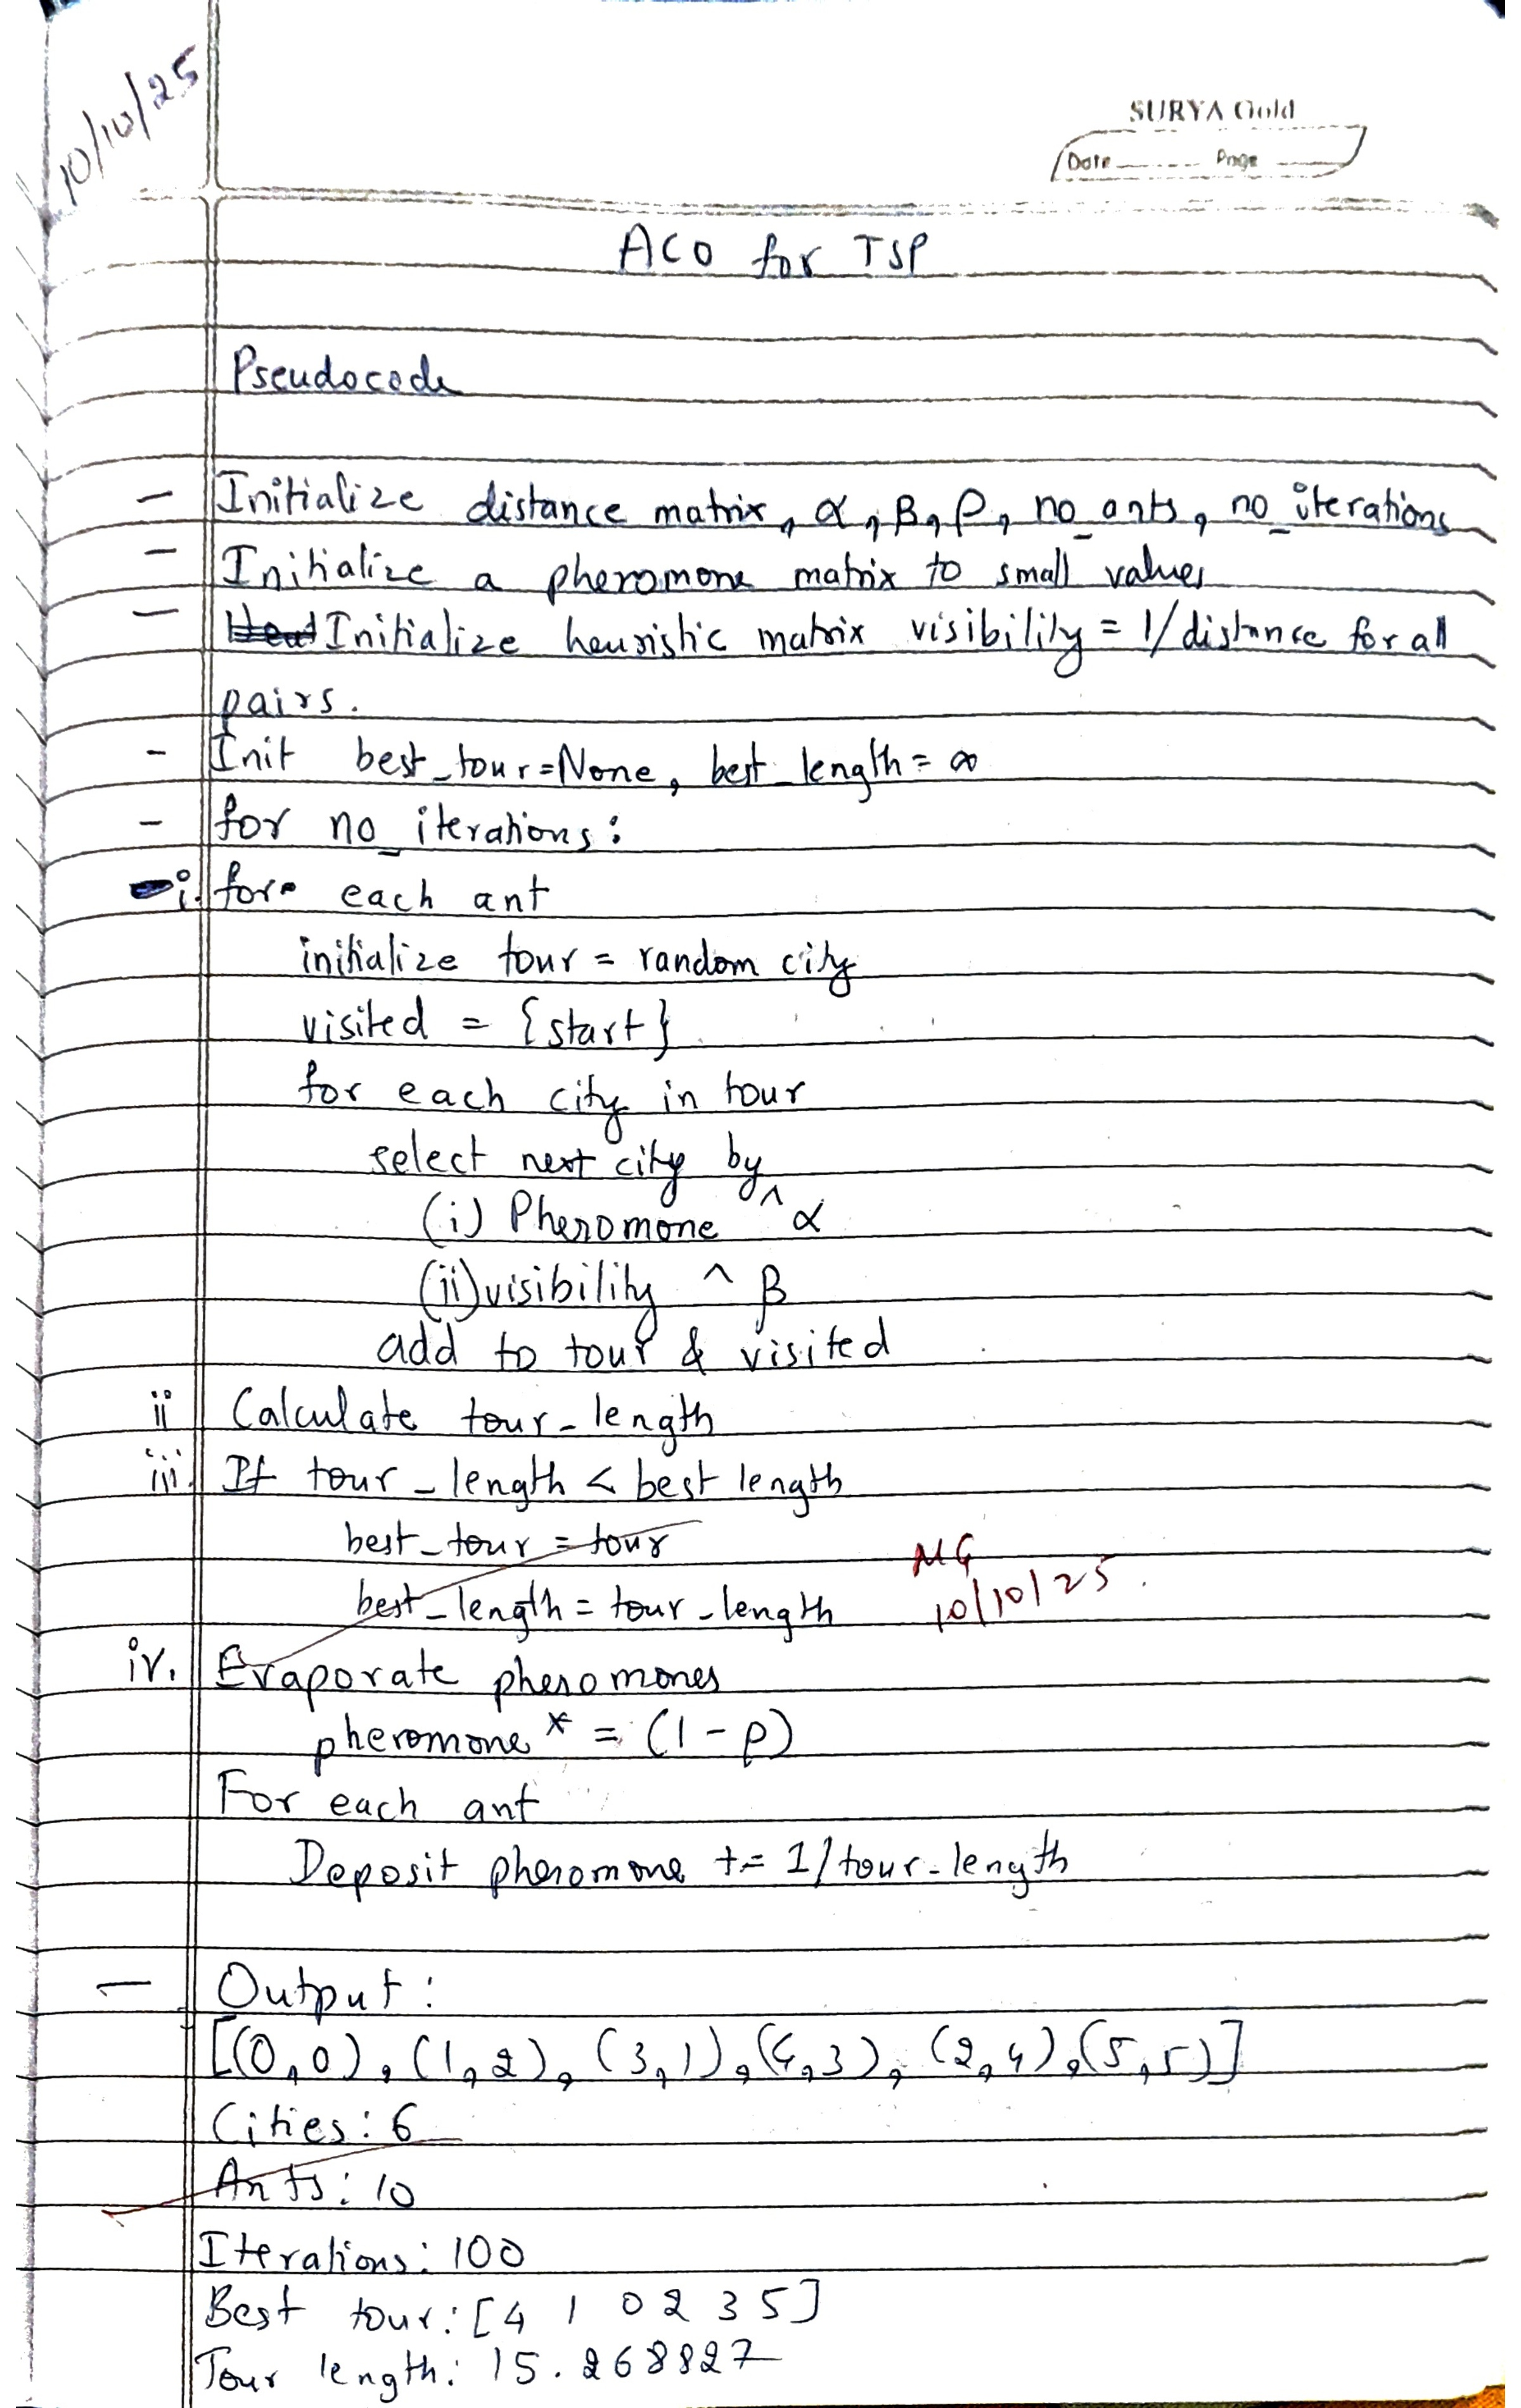 10/10/25
SURYA Gold
Date Page
ACO for TSP
Pseudocode
- Initialize distance matrix, α, β, ρ, no_ants, no_iterations
- Initialize a pheromone matrix to small values
- Initialize heuristic matrix visibility = 1/distance for all
pairs.
- Init best_tour=None, best_length = ∞
- for no_iterations:
i. for each ant
initialize tour = random city
visited = {start}
for each city in tour
select next city by
(i) Pheromone ^ α
(ii) visibility ^ β
add to tour & visited
ii Calculate tour_length
iii. If tour_length < best length
best_tour = tour
best_length = tour_length
MG
10/10/25
iv. Evaporate pheromones
pheromone * = (1 - ρ)
For each ant
Deposit pheromone += 1/tour_length
- Output:
[(0,0), (1,2), (3,1), (4,3), (2,4), (5,5)]
Cities: 6
Ants: 10
Iterations: 100
Best tour: [4 1 0 2 3 5]
Tour length: 15.268827